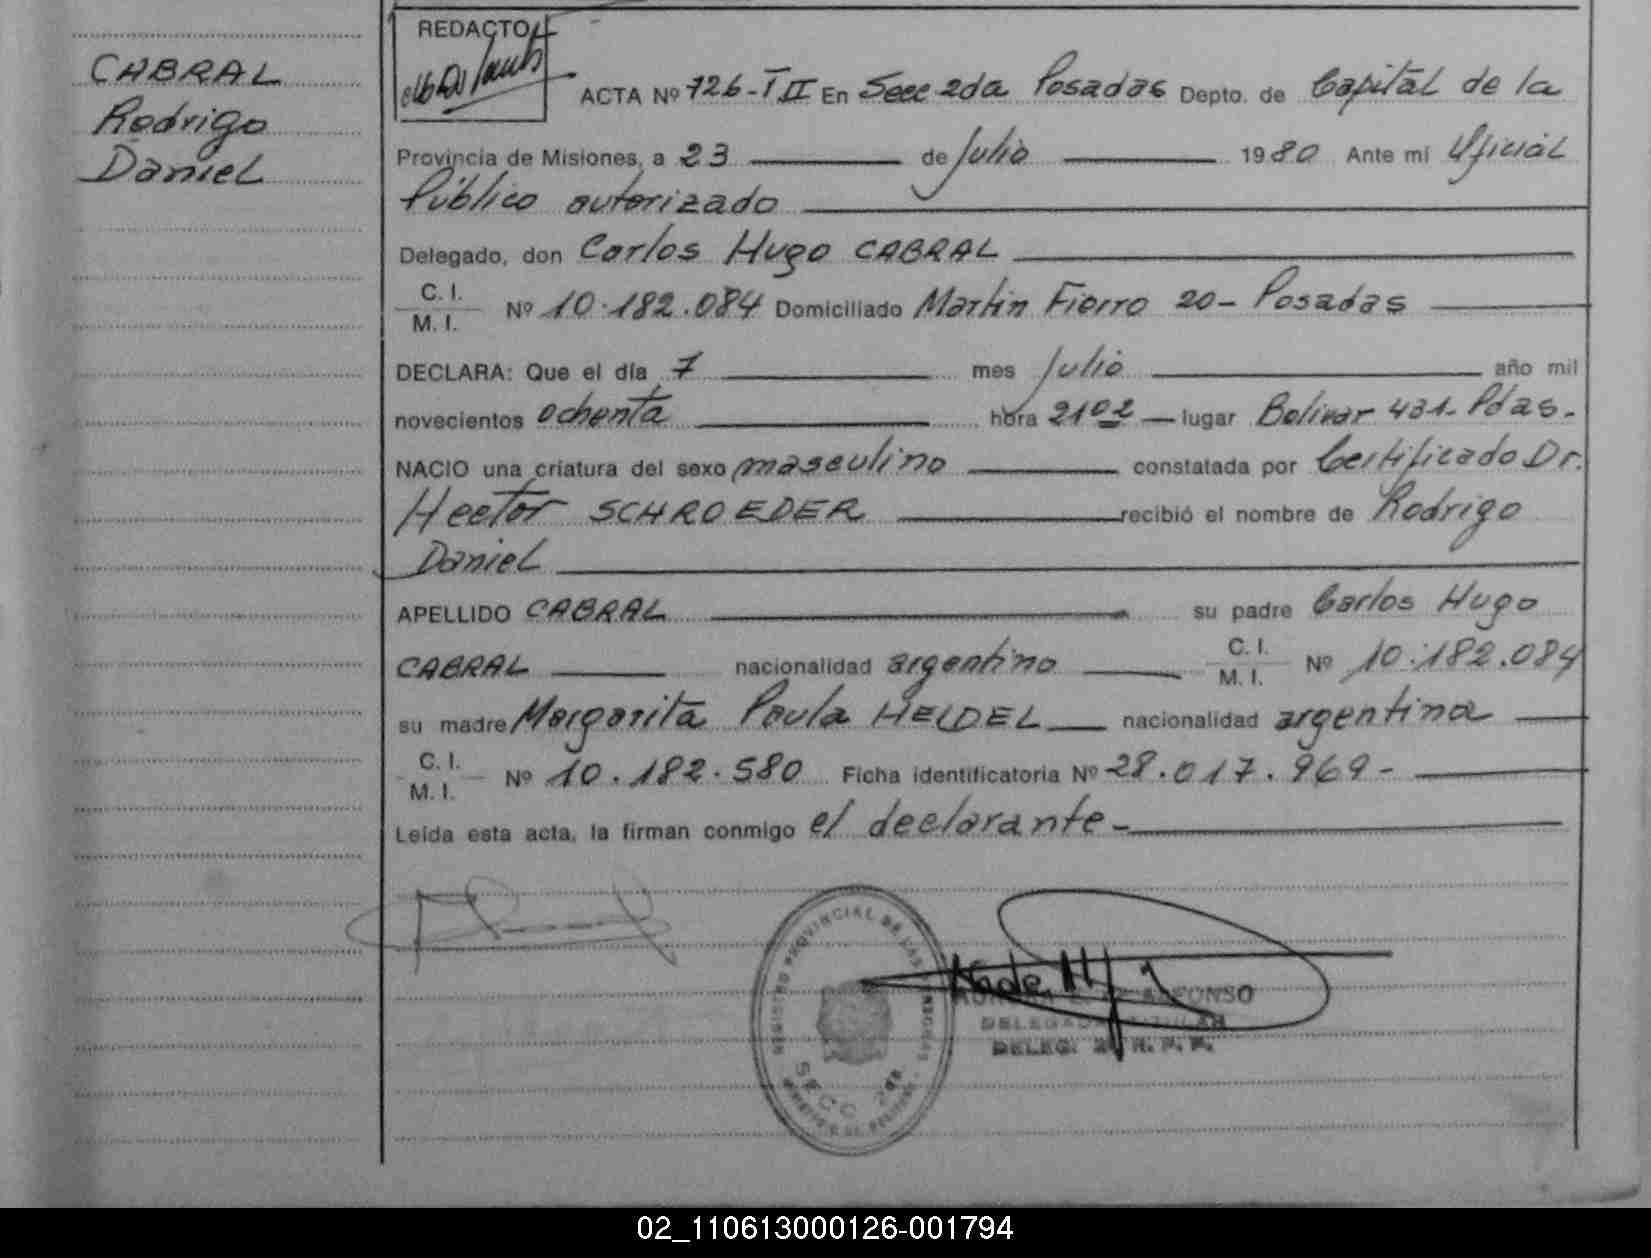 CABRAL
Rodrigo
Daniel
REDACTO
ACTA Nº 726-T II En Secc 2da Posadas Depto. de Capital de la
Provincia de Misiones, a 23 de Julio 1980 Ante mi Oficial
Público autorizado
Delegado, don Carlos Hugo CABRAL
C. I.
M. I. Nº 10.182.084 Domiciliado Martin Fierro 20- Posadas
DECLARA: Que el día 7 mes Julio año mil
novecientos ochenta hora 2102 lugar Bolivar 431- Pdas.
NACIO una criatura del sexo masculino constatada por Certificado Dr.
Hector SCHROEDER recibió el nombre de Rodrigo
Daniel
APELLIDO CABRAL su padre Carlos Hugo
CABRAL nacionalidad argentino C. I.
M. I. Nº 10.182.084
su madre Margarita Paula HEIDEL nacionalidad argentina
C. I.
M. I. Nº 10.182.580 Ficha identificatoria Nº 28.017.969-
Leída esta acta, la firman conmigo el declarante-
REGISTRO PROVINCIAL DE LAS PERSONAS
SECC 2da
ALFONSO
DELEGADA TITULAR
DELEG. 2ª R. P. P.
02_110613000126-001794